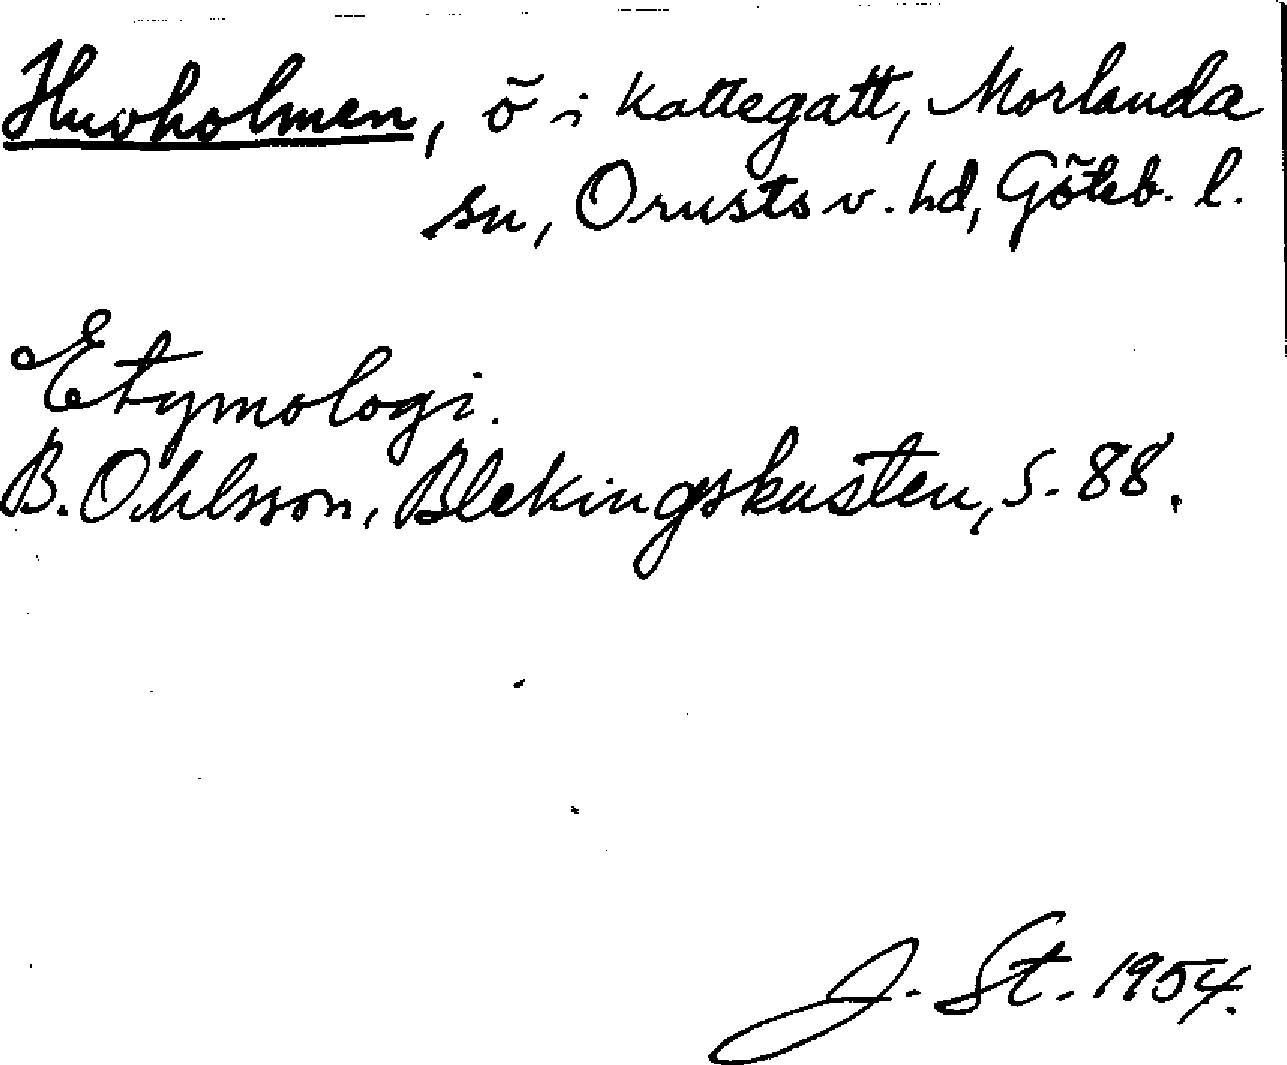 Huvholmen, ö i Kattegatt, Morlanda
sn, Orusts v. hd, Göteb. l.
Etymologi.
B. Ohlsson, Blekingskusten, s. 88.
J. St. 1954.